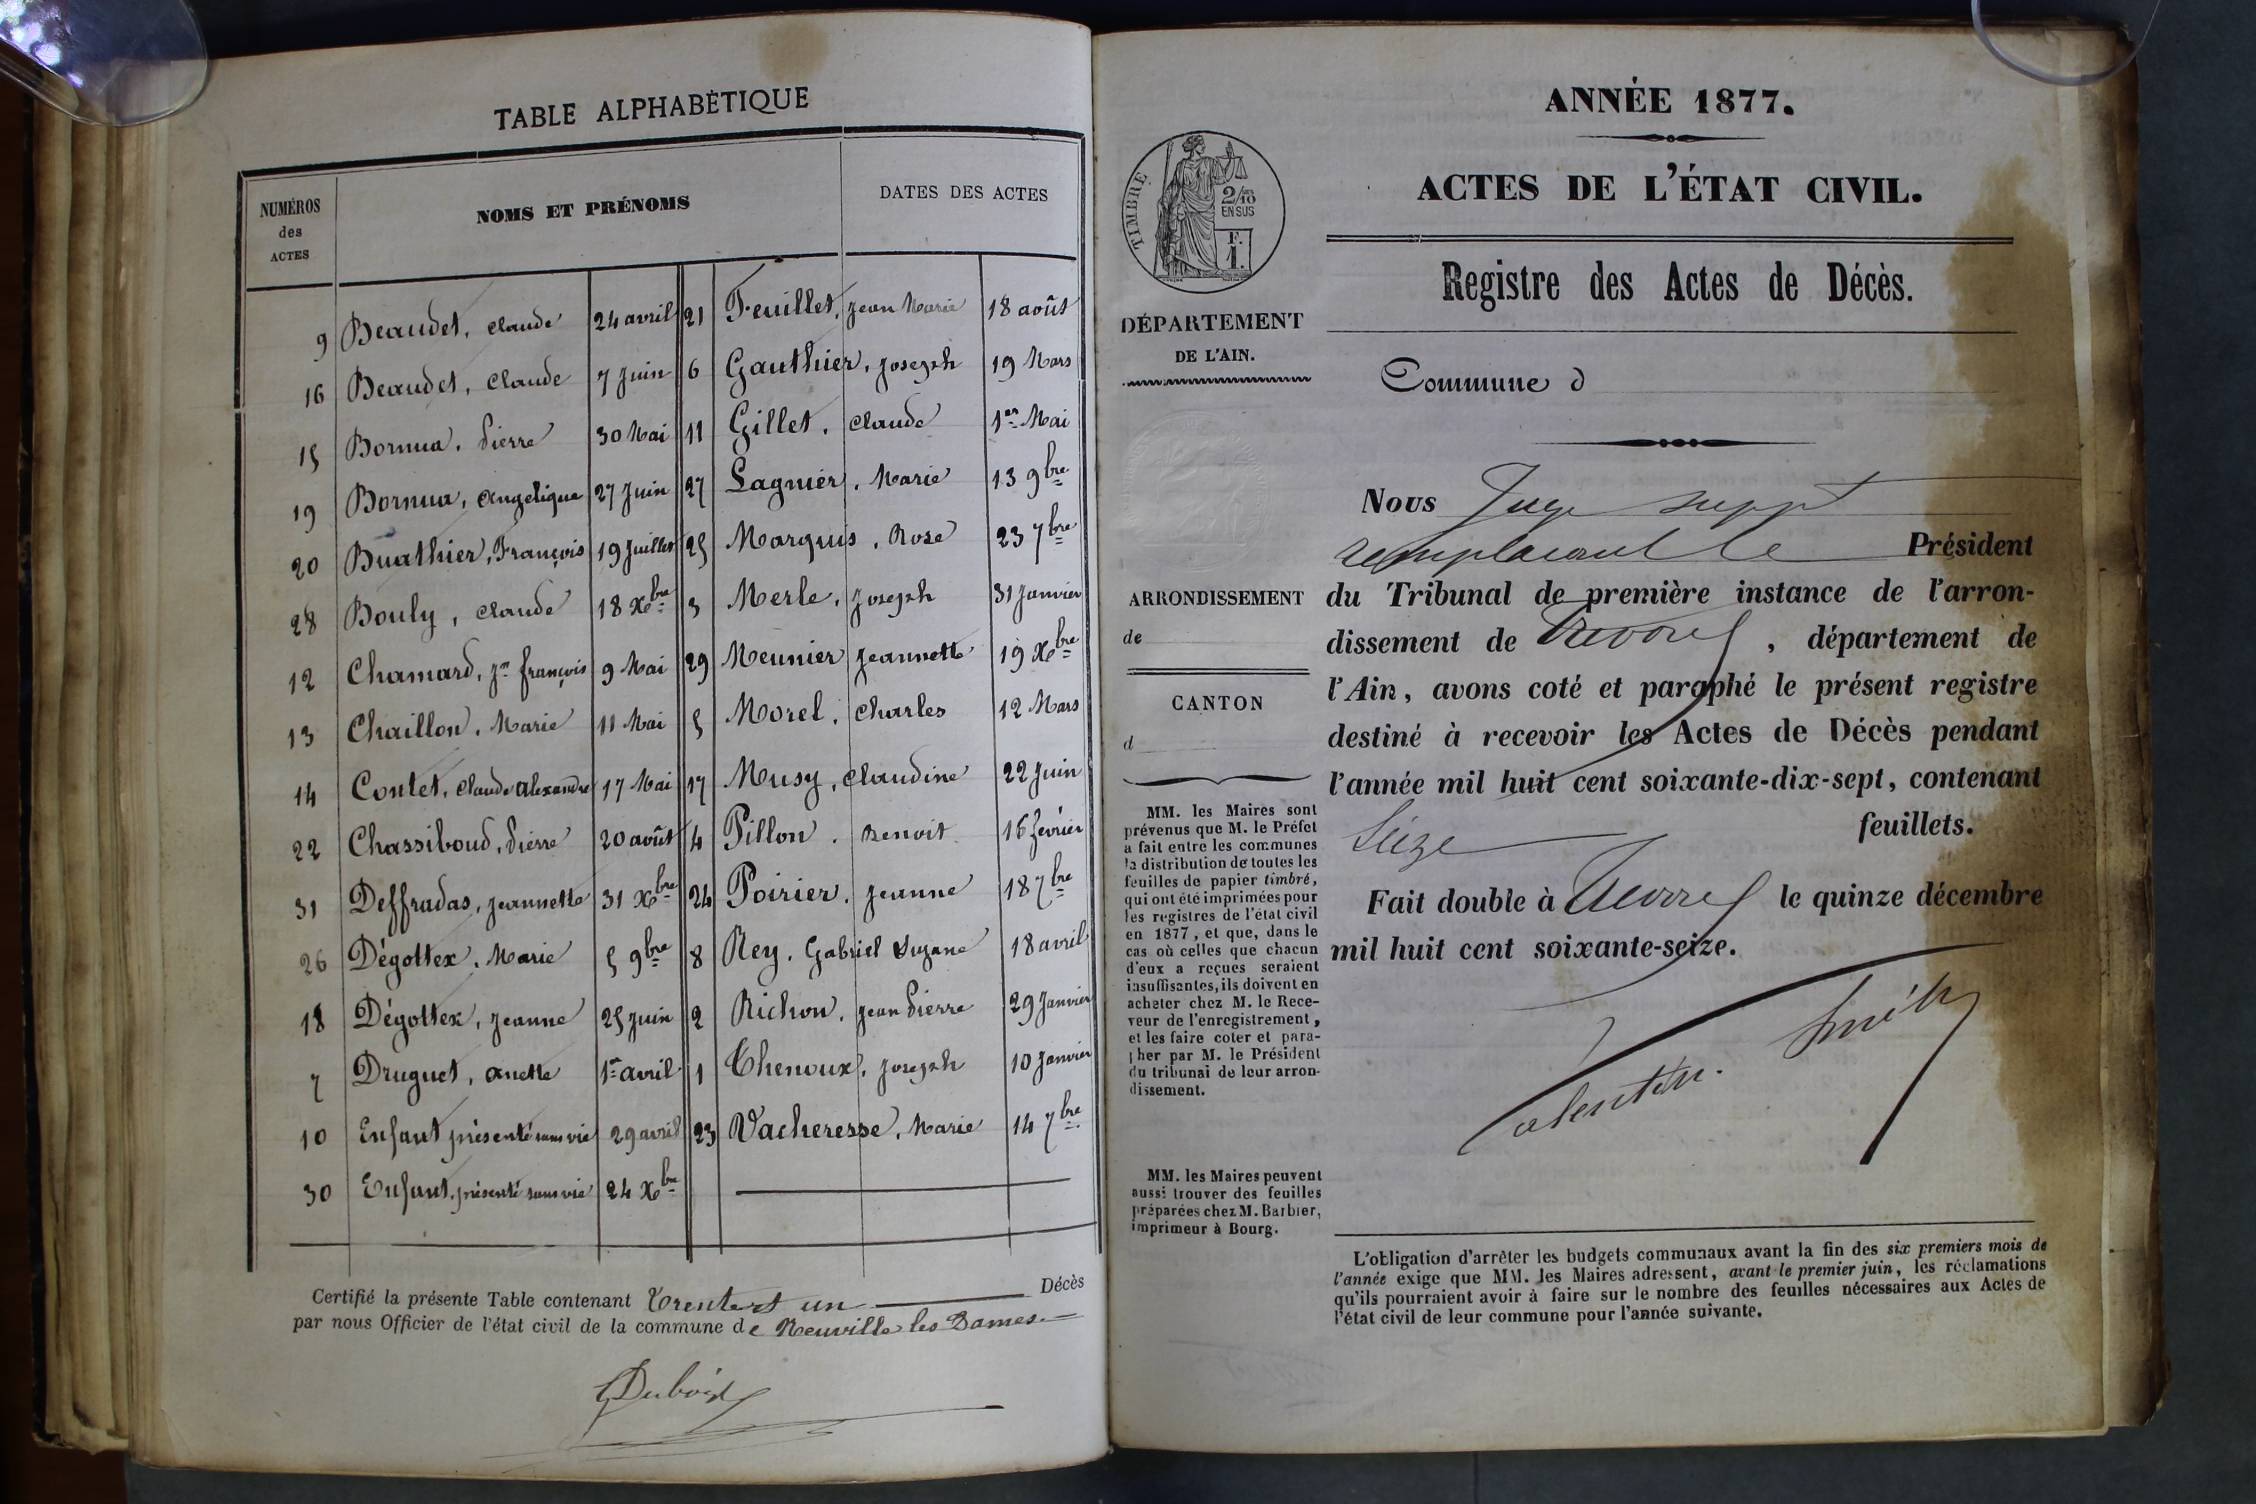 TABLE ALPHABÉTIQUE
NUMÉROS des ACTES
NOMS ET PRÉNOMS
DATES DES ACTES
9 Beaudet, Claude 24 avril
16 Beaudet, Claude 7 Juin
15 Bornua, Pierre 30 Mai
19 Bornua, Angelique 27 Juin
20 Buathier, François 19 Juillet
28 Bouly, Claude 18 Xbre
12 Chamard, Jn François 9 Mai
13 Chaillon, Marie 11 Mai
14 Contet, Claude Alexandre 17 Mai
22 Chassiboud, Pierre 20 août
31 Deffradas, Jeannette 31 Xbre
26 Dégottex, Marie 5 9bre
18 Dégottex, Jeanne 25 Juin
7 Druguet, Anette 1er avril
10 Enfant présenté sans vie 29 avril
30 Enfant présenté sans vie 24 Xbre
21 Feuillet, Jean Marie 18 août
6 Gauthier, Joseph 19 Mars
11 Gillet, Claude 1er Mai
27 Lagnier, Marie 13 9bre
25 Marquis, Rose 23 7bre
3 Merle, Joseph 31 Janvier
29 Meunier Jeannette 19 Xbre
5 Morel, Charles 12 Mars
17 Musy, Claudine 22 Juin
4 Pillon, Benoit 16 février
24 Poirier, Jeanne 18 7bre
8 Rey, Gabriel Suzane 18 avril
2 Richon, Jean Pierre 29 Janvier
1 Thenoux, Joseph 10 Janvier
23 Vacheresse, Marie 14 7bre
Certifié la présente Table contenant Trente et un Décès
par nous Officier de l'état civil de la commune de Neuville les Dames
Dubois
ANNÉE 1877.
ACTES DE L'ÉTAT CIVIL.
Registre des Actes de Décès.
TIMBRE
2/10
EN SUS
F.
1.
DÉPARTEMENT
DE L'AIN.
Commune d
ARRONDISSEMENT
de
CANTON
d
MM. les Maires sont
prévenus que M. le Préfet
a fait entre les communes
la distribution de toutes les
feuilles de papier timbré,
qui ont été imprimées pour
les registres de l'état civil
en 1877, et que, dans le
cas où celles que chacun
d'eux a reçues seraient
insuffisantes, ils doivent en
acheter chez M. le Rece-
veur de l'enregistrement,
et les faire coter et para-
pher par M. le Président
du tribunal de leur arron-
dissement.
MM. les Maires peuvent
aussi trouver des feuilles
préparées chez M. Barbier,
imprimeur à Bourg.
Nous Juge suppt
remplacant le Président
du Tribunal de première instance de l'arron-
dissement de Trevoux, département de
l'Ain, avons coté et paraphé le présent registre
destiné à recevoir les Actes de Décès pendant
l'année mil huit cent soixante-dix-sept, contenant
Seize feuillets.
Fait double à Trevoux le quinze décembre
mil huit cent soixante-seize.
Valentin Smith
L'obligation d'arrêter les budgets communaux avant la fin des six premiers mois de
l'année exige que MM. les Maires adressent, avant le premier juin, les réclamations
qu'ils pourraient avoir à faire sur le nombre des feuilles nécessaires aux Actes de
l'état civil de leur commune pour l'année suivante.